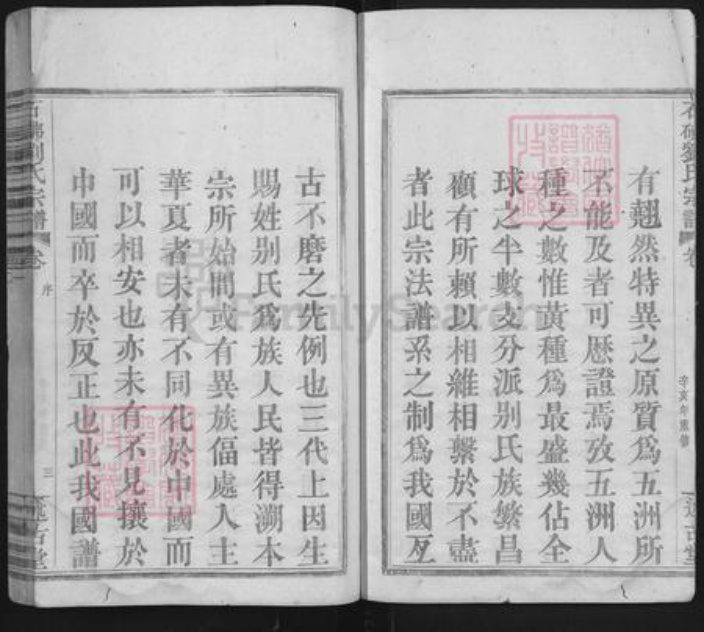 有翹然特異之原質爲五洲所
不能及者可厯證焉攷五洲人
種之數惟黄種爲最盛幾佔全
球之半數支分派别氏族繁昌
顧有所賴以相維相繫於不盡
者此宗法譜系之制爲我國亙
石硊劉氏宗譜
卷
辛亥年重修
述古堂
石硊劉氏宗譜
卷一
序
三
述古堂
古不磨之先例也三代上因生
賜姓别氏爲族人民皆得溯本
宗所始間或有異族偪處入主
華夏者未有不同化於中國而
可以相安也亦未有不見攘於
中國而卒於反正也此我國譜
FamilySearch